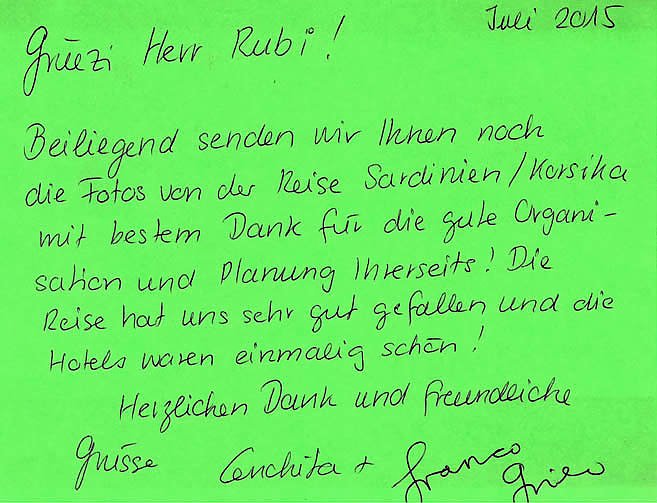 Juli 2015
Grüezi Herr Rubi!
Beiliegend senden wir Ihnen noch
die Fotos von der Reise Sardinien/Korsika
mit bestem Dank für die gute Organi-
sation und Planung Ihrerseits! Die
Reise hat uns sehr gut gefallen und die
Hotels waren einmalig schön!
Herzlichen Dank und freundliche
Grüsse Conchita + Franco
Grieco